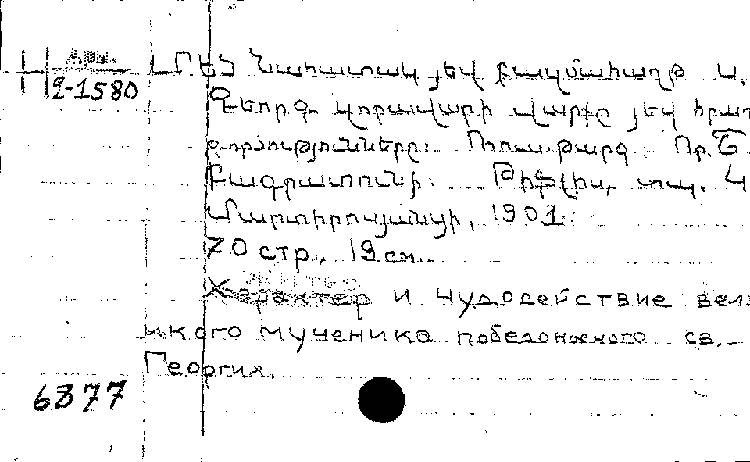 Արм. ՄԵԾ Նահատակ յեվ բազմահաղթ Ս.
2-1580 Գեորգ զորավարի վարքը յեվ հրաշ
գործությունները: Ռուս. թարգ. Ռր. Տ.
Բագրատունի. Թիֆլիս, տպ.
Մարտիրոսյանցի, 1901.
70 стр., 19 см.
Житие
Характер и чудодействие вел
икого мученика победоносного св.
Георгия.
6877